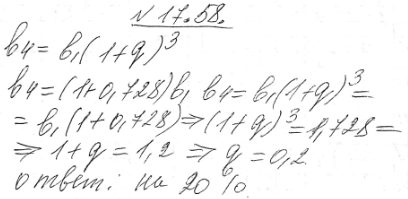 N 17.58.
b₄ = b₁(1+q)³
b₄ = (1+0,728)b₁ b₄ = b₁(1+q)³ =
= b₁(1+0,728) ⇒ (1+q)³ = 1,728 =
⇒ 1+q = 1,2 ⇒ q = 0,2
ответ: на 20%